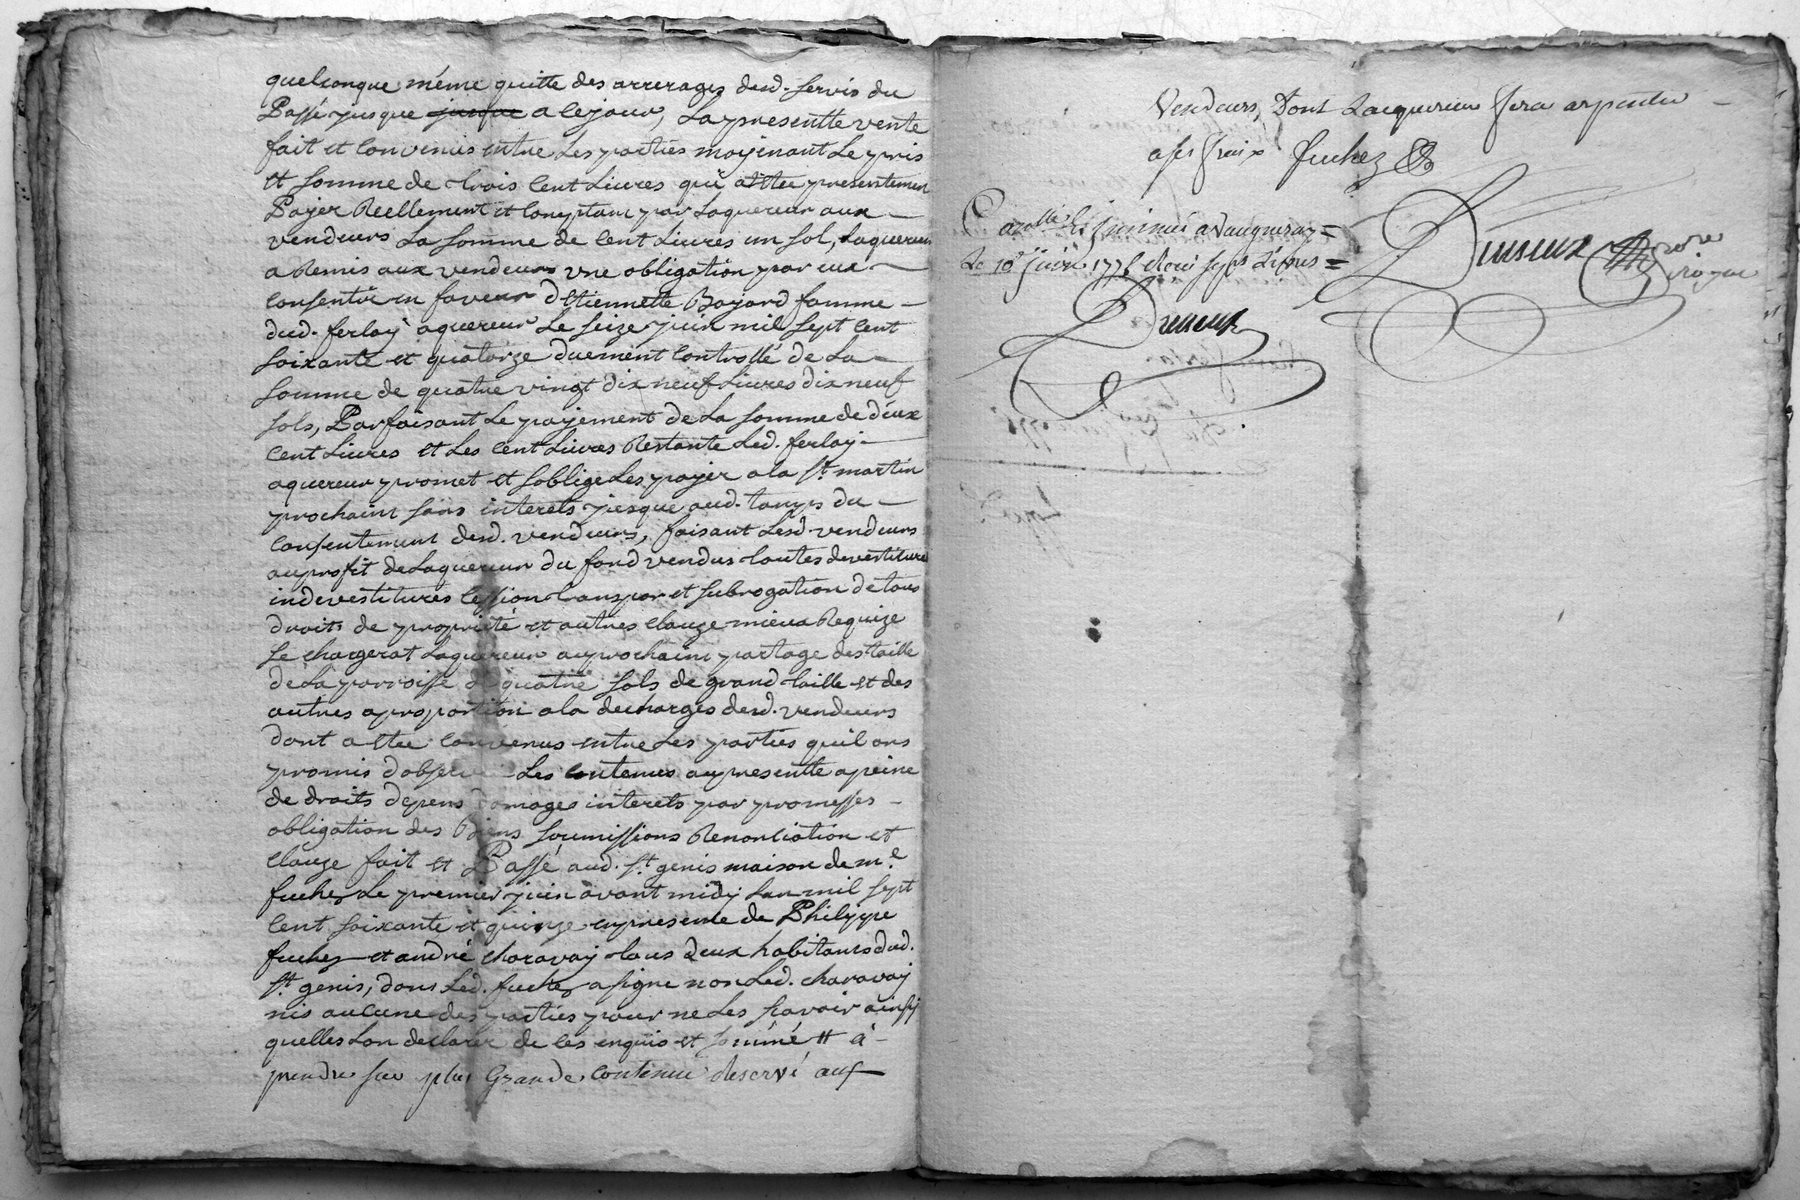 quelconque même quitte des arrerages desd. servis du
Passé jusque jusque a ce jour, La presentte vente
fait et Convenus entre Les parties moyenant Le pris
et somme de trois Cent Livres qui a ettee presentement
Payer Reellement et Comptant par Laquereur aux
vendeurs La somme de Cent Livres un sol, Laquereur
a Remis aux vendeurs une obligation par eux
Consentie en faveur d'Etiennette Bayard famme
dud. ferlay aquereur Le seize juin mil sept Cent
soixante et quatorze duement Controllé de La
somme de quatre vingt dix neuf Livres dix neuf
sols, Parfaisant Le payement de La somme de deux
Cent Livres et Les Cent Livres Restante Led. ferlay
aquereur promet et soblige Les payer a la st. martin
prochaint sans interets jusque aud. tamps du
Consentement desd. vendeurs, faisant Lesd. vendeurs
au profit de Laquereur du fond vendus toutes devestitures
indevestitures Cession transpor et subrogation de tous
droits de propriété et autres Clauze mieux Requize
se chargerat Laquereur au prochaint partage des taille
de La parroisse de quatre sols de grand taille et des
autres a proportion a la decharges desd. vendeurs
dont a ettee Convenus entre Les parties quil ons
promis d'observer Les Contenus au presentte a peine
de droits depens domages interets par promesses
obligation des Biens soumissions Renontiation et
Clauze fait et Passé aud. st. genis maison de me.
fuchez Le premier juin avant midy Lan mil sept
Cent soixante et quinze en presence de Philippe
fuchez et andré charavay tous deux habitants dud.
st. genis, dons Led. fuchez a signe non Led. charavay
nis aucune des parties pour ne Les scavoir ainsy
quelles Lon declarer de Ces enquis et sommé # à
prendre sur plus Grande Contenue reservé aux
Vendeurs, Dont Lacquereur fera arpenter
a ses fraix fuchez
Con.lle et insinué a Vaugneray
Le 10 juin 1775 Recû